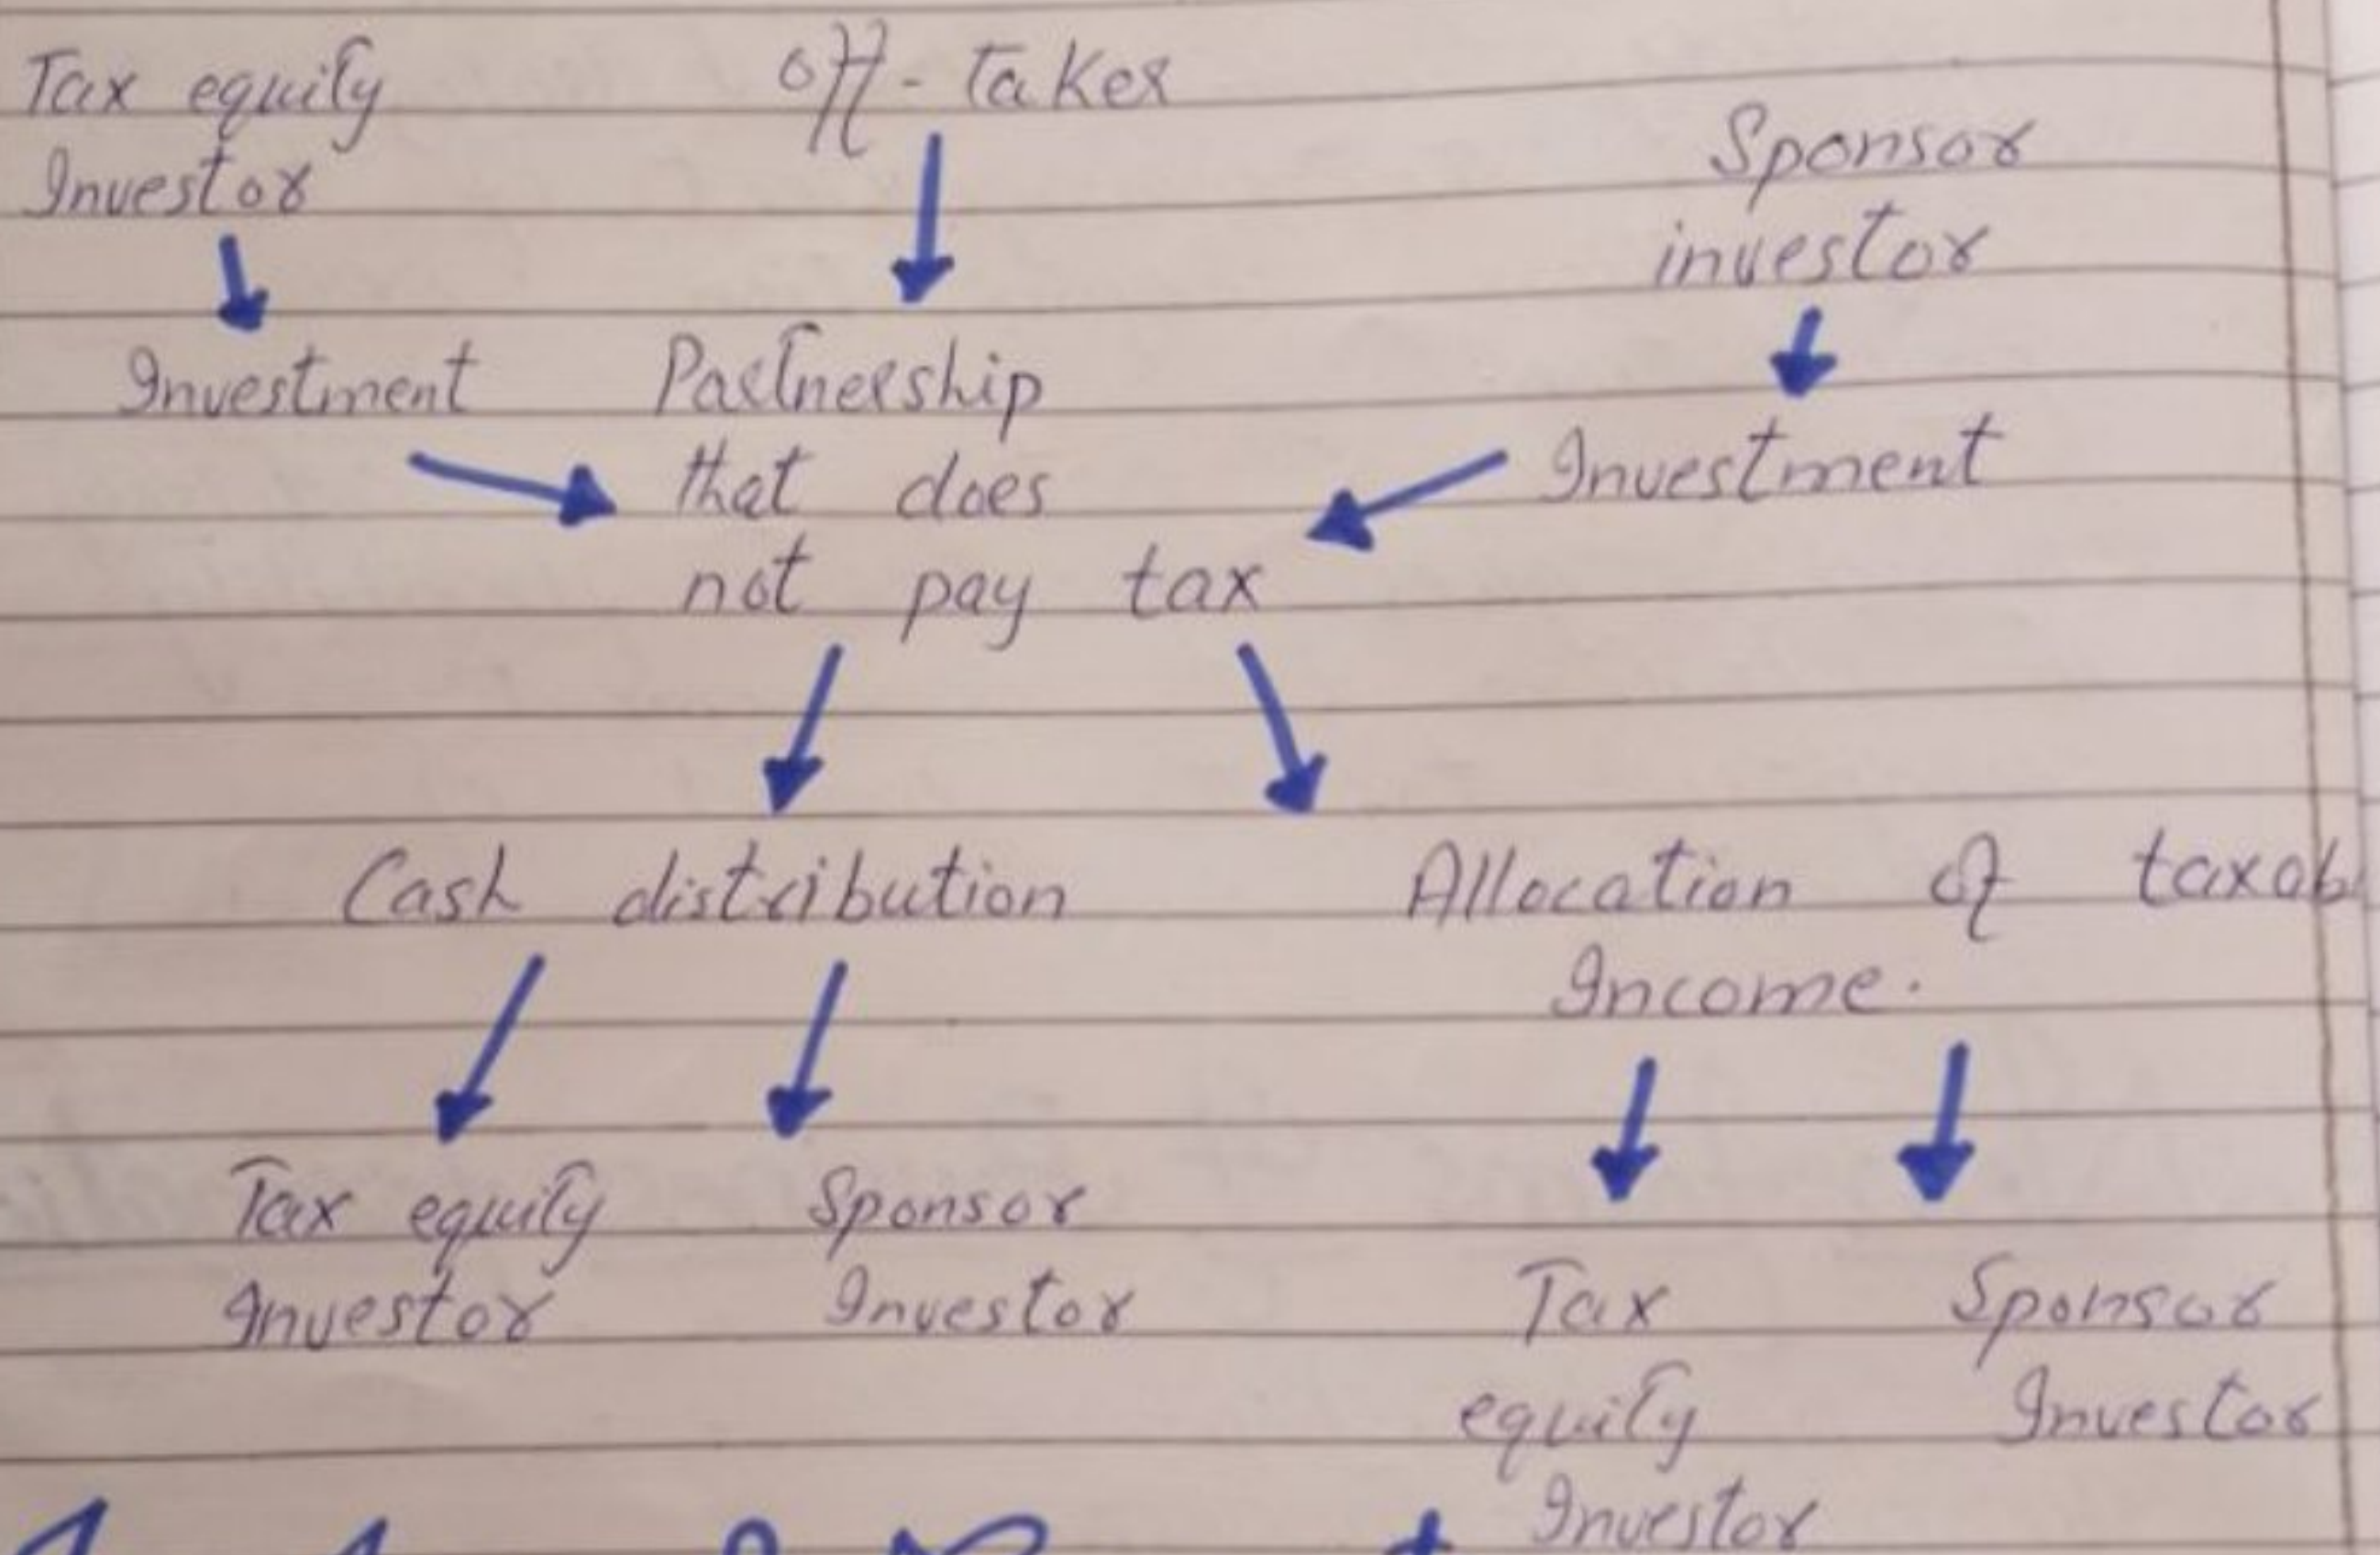 Tax equity
Investor
off-taker
Sponsor
investor
Investment
Partnership
that does
not pay tax
Investment
Cash distribution
Allocation of taxab
Income.
Tax equity
Investor
Sponsor
Investor
Tax
equity
Investor
Sponsor
Investor